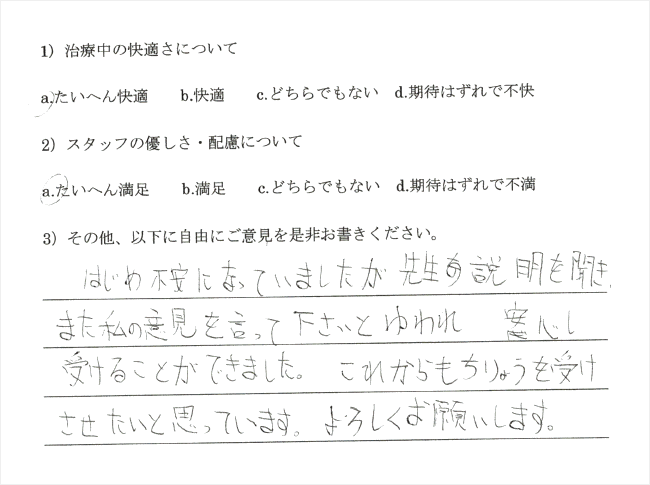 1）治療中の快適さについて
a.たいへん快適　b.快適　c.どちらでもない　d.期待はずれで不快
2）スタッフの優しさ・配慮について
a.たいへん満足　b.満足　c.どちらでもない　d.期待はずれで不満
3）その他、以下に自由にご意見を是非お書きください。
はじめ不安になっていましたが 先生の説明を聞き、
また私の意見を言って下さいとゆわれ 安心し
受けることができました。これからもちりょうを受け
させたいと思っています。よろしくお願いします。